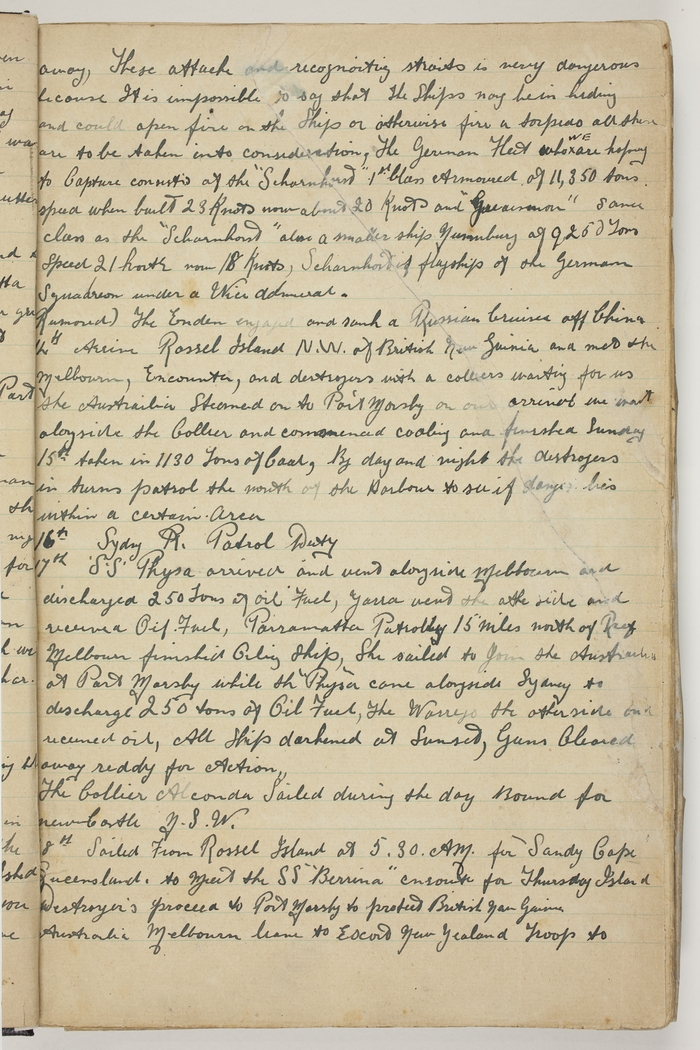 away, These attacke and recognoiting straits is very dangerous
because It is impossible to say that the Ships may be in hiding
and could open fire on the Ship or otherwise fire a torpedo all these
are to be taken into consideration, The German Fleet who WE are hoping
to Capture consists of the "Scharnhorst" 1st Class Armoured of 11,350 tons
speed when built 23 Knots now about 20 Knots and "Gneisenau" same
class as the "Scharnhorst" also a smaller ship Nurnburg of 9250 Tons
Speed 21 knots now 18 Knots, Scharnhorst is flagship of the German
Squadreon under a Vice admiral.
Rumoured) The Enden engaged and sunk a Russian Cruiser off China
Arrive Rossel Island N.W. of British New Guinia and met the
Melbourn, Encounter, and destroyers with a colliers waiting for us
the Austrailia Steamed on to Port Morsby on our arrival we went
alongside the Collier and commenced coaling and finished Sunday
15th taken in 1130 Tons of Coal, By day and night the destroyers
in turns patrol the mouth of the Harbour to see if danger lies
within a certain Area
16th Sydny R. Patrol Duty
17th "S.S" Physa arrived and went alongside Melbourn and
discharged 250 Tons of oil Fuel, Yarra went the othe side and
received Oil Fuel, Parramatta Patrolling 15 miles north of Reef
Melbourn finished Oiling Ship, She sailed to Join the Australia
at Port Morsby while the Physa came alongside Sydney to
discharge 250 tons of Oil Fuel, The Warrego the otherside and
received oil, All Ships darkened at Sunset, Guns Cleared
away reddy for Action,
The Collier Alconda Sailed during the day Bound for
new Castle N.S.W.
8th Sailed From Rossel Island at 5.30. AM. for Sandy Cape
Queensland. to meet the SS "Berrima" enroute for Thursday Island
Destroyer's proceed to Port Morsby to protect British New Guine
Australia Melbourn leave to Escort New Zealand Troop to